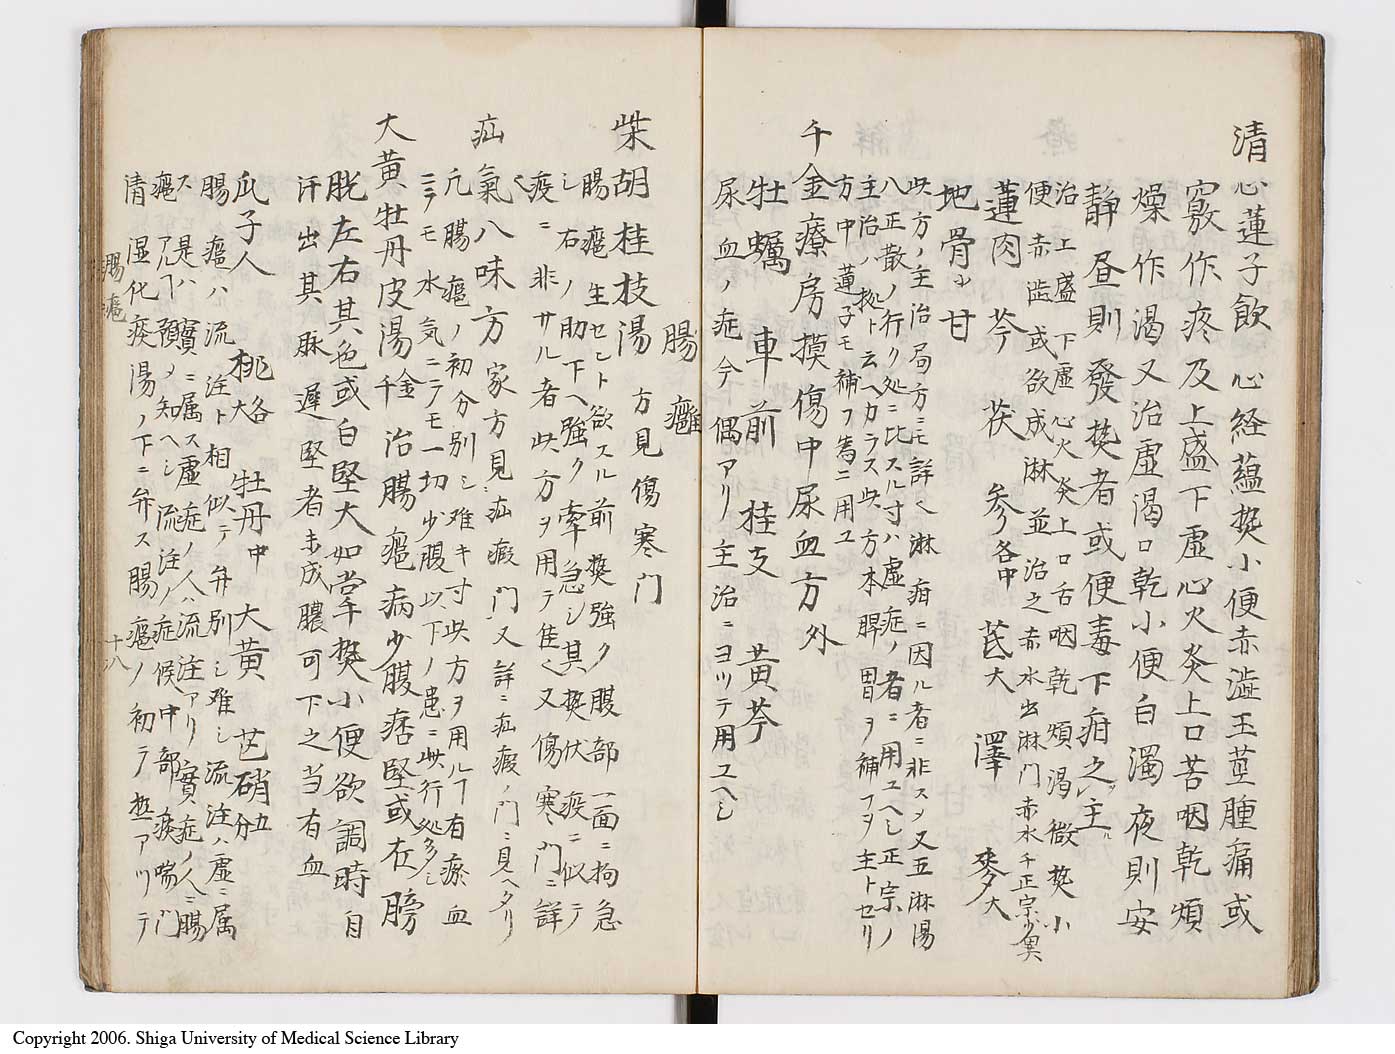 清心蓮子飲 心経蘊熱小便赤澁玉莖腫痛或
竅作疼及上盛下虚心火炎上口苦咽乾煩
燥作渇又治虚渇口乾小便白濁夜則安
静昼則發熱者或便毒下疳之主ル
治上盛下虚心火炎上口舌咽乾煩渇微熱小
便赤澁或欲成淋並治之 赤水出淋門赤水千正宗
蓮肉 芩 茯 參各中 芪大 澤 麥大
地骨少 甘
此方ノ主治局方ニモ詳ク淋疳ニ因ル者ニ非ス又五淋湯
八正散ノ行ク処ニ比スル寸ハ虚症ノ者ニ用ユヘシ正宗ノ
主治ハ拠ト云ヘカラス此方本脾胃ヲ補フヲ主トセリ
方中蓮子モ補フ為ニ用ユ
千金療房損傷中尿血方外
牡蠣 車前 桂支 黄芩
尿血ノ症今偶アリ主治ニヨツテ用ユヘシ
腸癰
柴胡桂枝湯 方見傷寒门
腸癰生セント欲スル前熱強ク腹部一面ニ拘急
シ右ノ肋下ヘ強ク牽急シ其熱伏疫ニ似テ
疫ニ非サル者此方ヲ用テ佳ク又傷寒门ニ詳
ク
疝氣八味方 家方見疝瘕门又詳ニ疝瘕ノ门ニ見ヘタリ
凢腸癰ノ初分別シ难キ寸此方ヲ用ルヿ有瘀血
ニテモ水気ニテモ一切少腹以下ノ患ニ此行処多シ
大黄牡丹皮湯 千金 治腸癰病少腹痞堅或在膀
胱左右其色或白堅大如掌熱小便欲調時自
汗出其脉遲堅者未成膿可下之当有血
瓜子人 桃各大 牡丹中 大黄 芒硝五分
腸癰ハ流注ト相似テ弁別シ难シ流注ハ虚ニ属
ス是ハ實ニ属ス虚症ノ人ハ流注アリ實症ノ人ニ腸
癰アル下預メ知ヘシ流注ノ症候中部痰喘门
清湿化痰湯ノ下ニ弁ス腸癰ノ初テ起アツテ
腸癰 十八